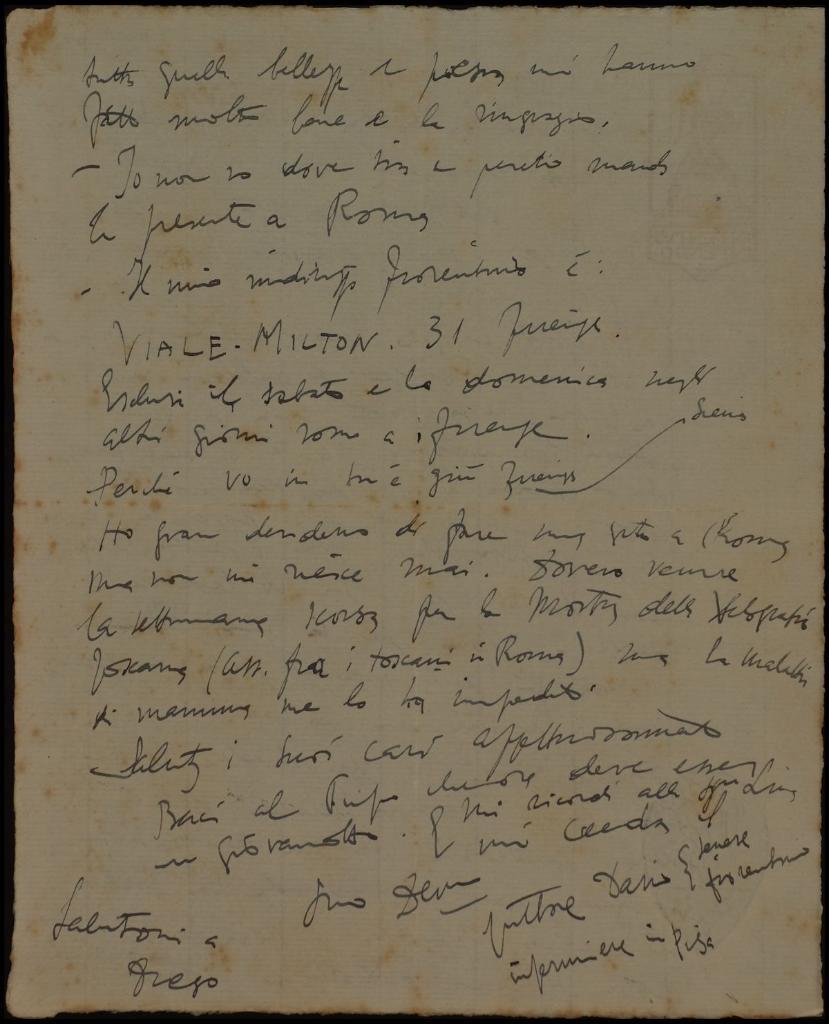 tutta quella bellezza e poesia mi hanno
fatto molto bene e la ringrazio.
- Io non so dove sia e perciò mando
la presente a Roma
- Il mio indirizzo fiorentino è:
VIALE-MILTON. 31 Firenze.
Esclusi il sabato e la domenica negli
altri giorni sono a Firenze.
Perché vo in su e giù Firenze Siena
Ho gran desiderio di fare una gita a Roma
ma non mi riesce mai. Dovevo venire
la settimana scorsa per la Mostra della Xilografia
Toscana (Ass. fra i toscani in Roma) ma la malattia
di mamma me lo ha impedito.
Saluti i suoi cari affettuosamente
Baci al Pupo che ora deve essere
un giovanotto. E mi ricordi alla
mi creda il
suo
pittore Dario
fiorentino
infermiere in Pisa
Salutoni a
Diego